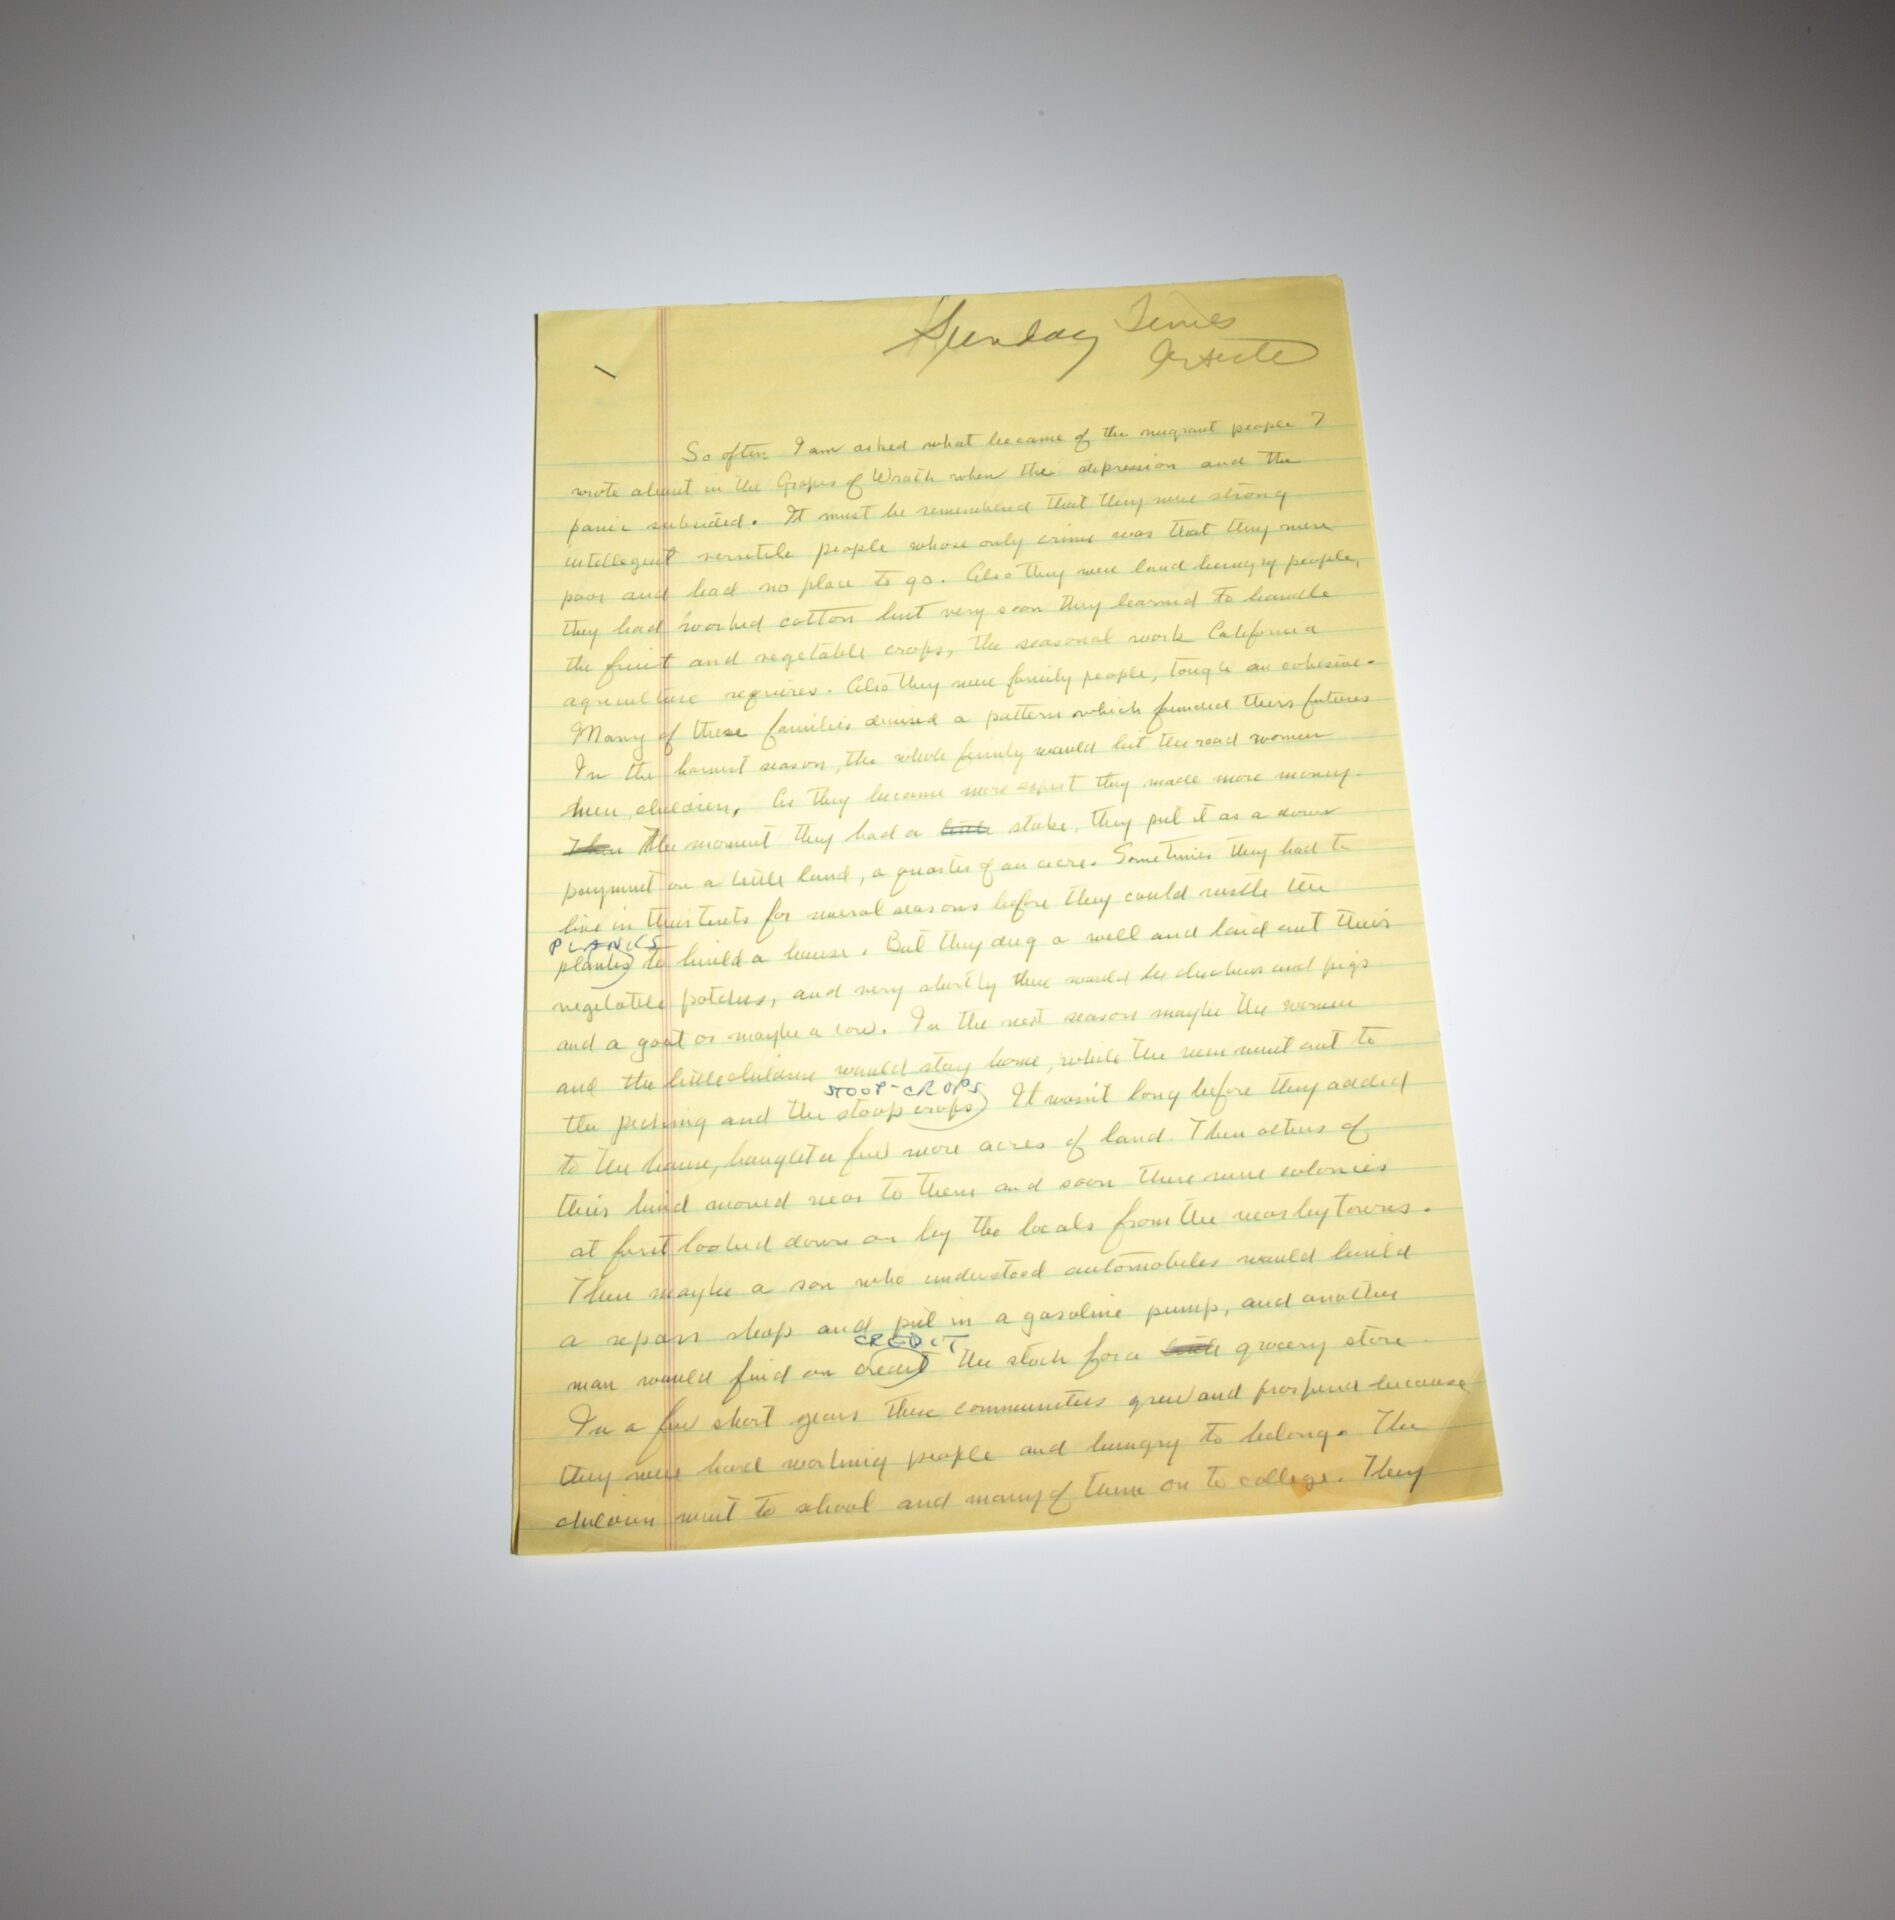 Sunday Times
Article
So often I am asked what became of the migrant people I
wrote about in the Grapes of Wrath when the depression and the
panic subsided. It must be remembered that they were strong
intellegent versitile people whose only crime was that they were
poor and had no place to go. Also they were land hungry people,
they had worked cotton but very soon they learned to handle
the fruit and vegetable crops, the seasonal work California
agriculture requires. Also they were family people, tough an cohesive.
Many of these families devised a pattern which founded their futures
In the harvest season, the whole family would hit the road women
men, children. As they became more expert they made more money.
Then The moment they had a little stake, they put it as a down
payment on a little land, a quarter of an acre. Sometimes they had to
live in their tents for several seasons before they could rustle the
PLANKS
planks to build a house. But they dug a well and laid out their
vegetable patches, and very shortly there would be chickens and pigs
and a goat or maybe a cow. In the next season maybe the women
and the little children would stay home, while the men went out to
STOOP-CROPS
the picking and the stoop crops It wasn't long before they added
to the house, bought a few more acres of land. Then others of
their kind moved near to them and soon there were colonies
at first looked down on by the locals from the nearby towns.
Then maybe a son who understood automobiles would build
a repair shop and put in a gasoline pump, and another
CREDIT
man would find on credit the stock for a little grocery store
In a few short years these communities grew and prospered because
they were hard working people and hungry to belong. The
children went to school and many of them on to college. They